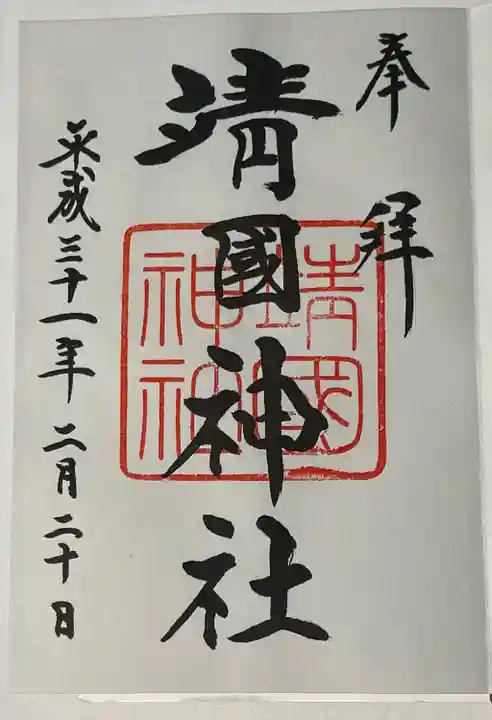 奉拝
靖國神社
靖国神社
平成三十一年二月二十日